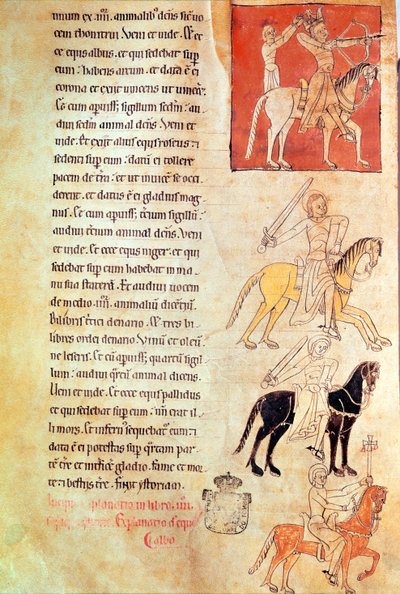 unum ex .iiii. animalib; dcēns sic̄ uo
cem thonitrui. Veni et uide. Et ec
ce equs albus. et qui sedebat sup
eum: habens arcum. et data ē ei
corona et exiit uincens ut uincer̄.
Et cum apuiss; sigillum scdm: au
diui scdm animal dcēns Veni et
uide. Et exiit alius equs roseus: et
sedenti sup eum: datū ē ei tollere
pacem de trā: et ut inuicē se occi
derent. et datus ē ei gladius mag
nus. Et cum apuiss; tcium sigillū:
audiui tcium animal dcēns. Veni
et uide. Et ecce equs niger. et qui
sedebat sup eum habebat in ma
nu sua staterā. Et audiui uocem
de medio .iiii. animaliū dicentiū.
Bilibris tritici denario. Et tres bi
libres ordei denario Vinū et oleū
ne leseris. Et cū apuiss; quartū sigil
lum: audiui qrtū animal dicens.
Ueni et uide. Et ecce equs pallidus
et qui sedebat sup eum: nm̄ erat il
li mors. Et infern; sequebat eum:
data ē ei potestas sup qrtam par
tē trē et inficere gladio. fame et mor
te et bestiis trē. Finit
Incipit explanatio in libro .iiii.
Explanatio
albo